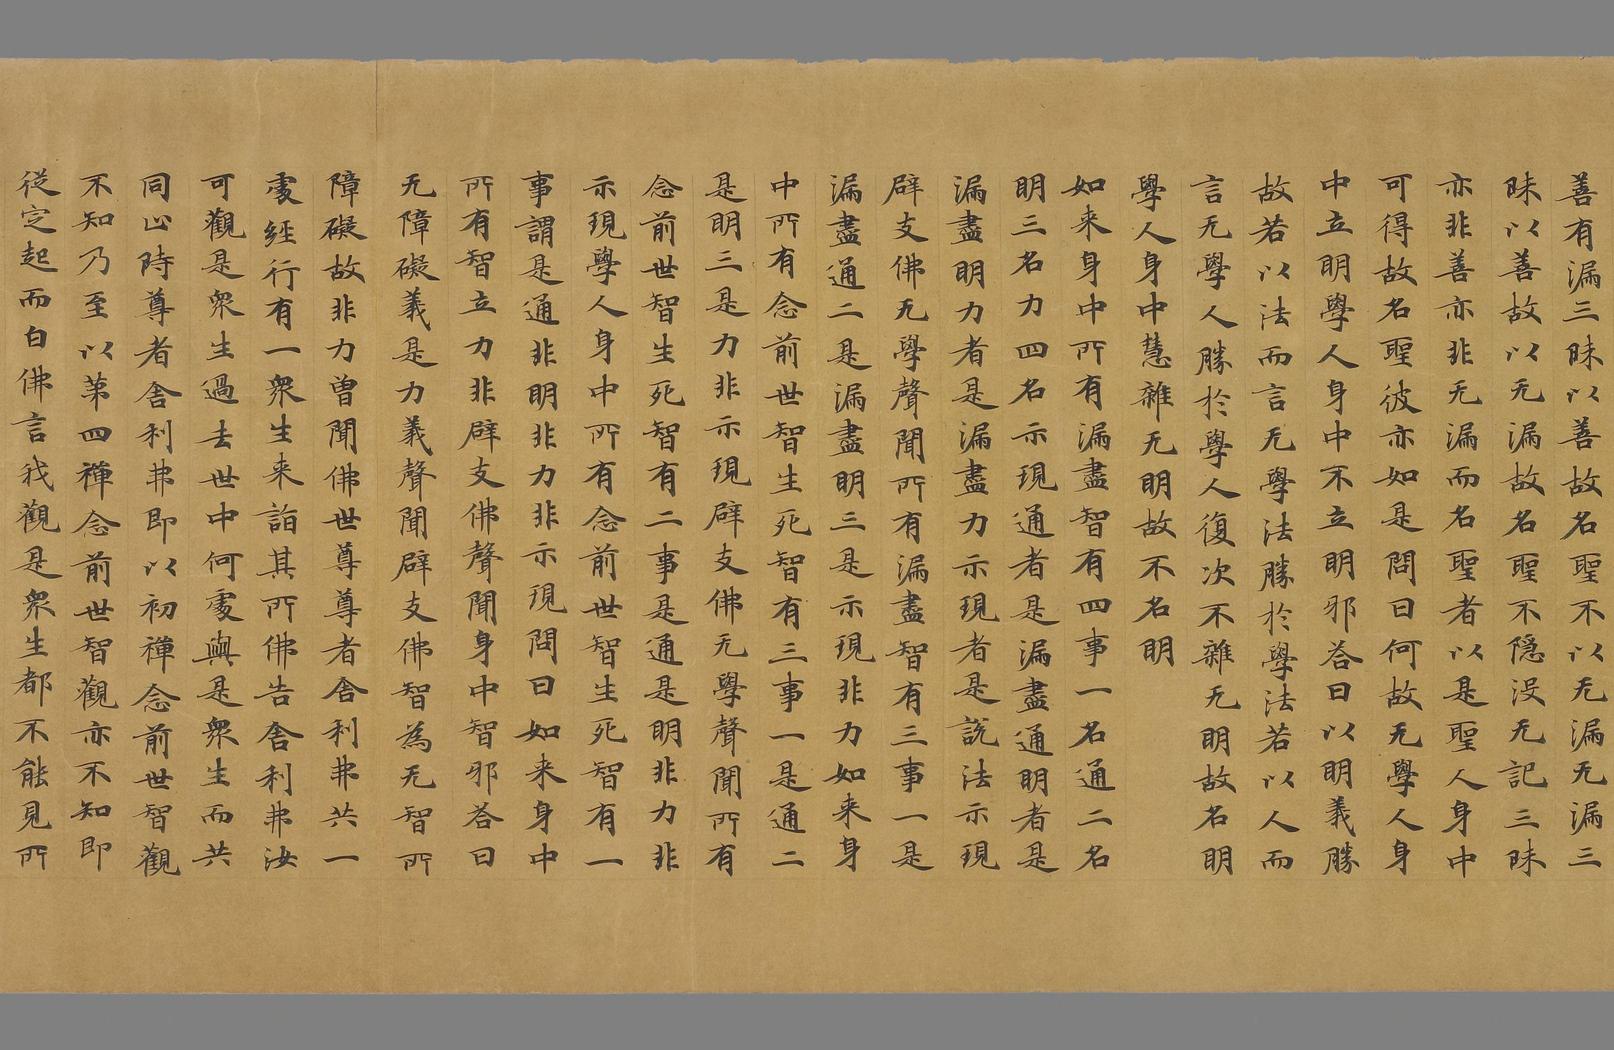 善有漏三昧以善故名聖不以无漏无漏三
昧以善故以无漏故名聖不隱没无記三昧
亦非善亦非无漏而名聖者以是聖人身中
可得故名聖彼亦如是問曰何故无學人身
中立明學人身中不立明邪荅曰以明義勝
故若以法而言无學法勝於學法若以人而
言无學人勝於學人復次不雜无明故名明
學人身中慧雜无明故不名明
如来身中所有漏盡智有四事一名通二名
明三名力四名示現通者是漏盡通明者是
漏盡明力者是漏盡力示現者是說法示現
辟支佛无學聲聞所有漏盡智有三事一是
漏盡通二是漏盡明三是示現非力如来身
中所有念前世智生死智有三事一是通二
是明三是力非示現辟支佛无學聲聞所有
念前世智生死智有二事是通是明非力非
示現學人身中所有念前世智生死智有一
事謂是通非明非力非示現問曰如来身中
所有智立力非辟支佛聲聞身中智邪荅曰
无障礙義是力義聲聞辟支佛智為无智所
障礙故非力曾聞佛世尊尊者舍利弗共一
處經行有一衆生来詣其所佛告舍利弗汝
可觀是衆生過去世中何處與是衆生而共
同止時尊者舍利弗即以初禪念前世智觀
不知乃至以第四禪念前世智觀亦不知即
從定起而白佛言我觀是衆生都不能見所